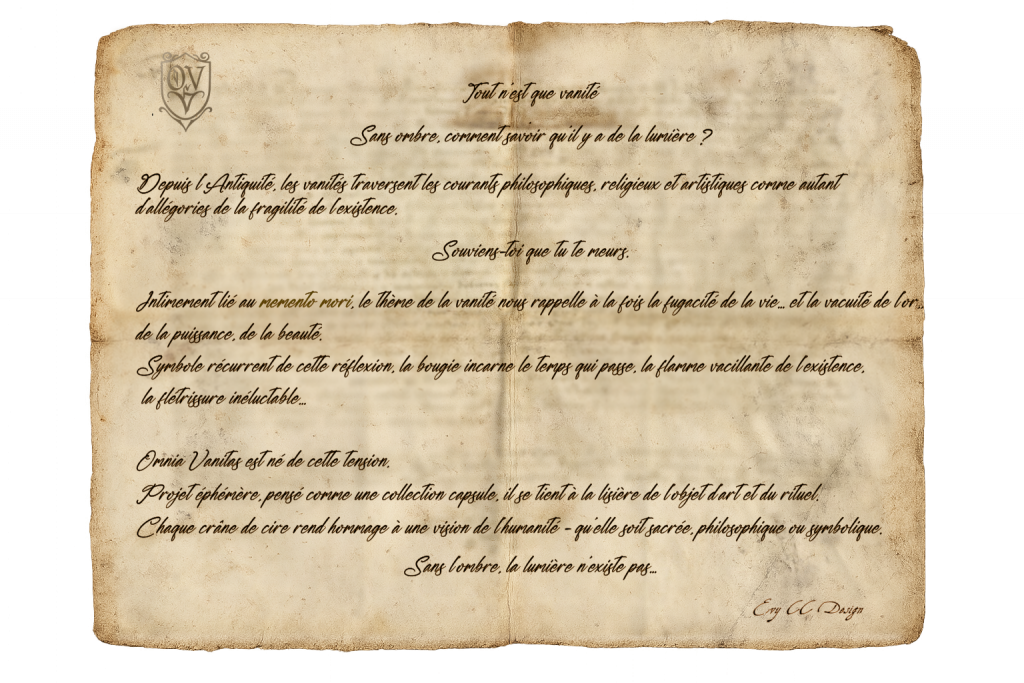 OV
V
Tout n'est que vanité
Sans ombre, comment savoir qu'il y a de la lumière ?
Depuis l'Antiquité, les vanités traversent les courants philosophiques, religieux et artistiques comme autant
d'allégories de la fragilité de l'existence.
Souviens-toi que tu te meurs.
Intimement lié au memento mori, le thème de la vanité nous rappelle à la fois la fugacité de la vie... et la vacuité de l'or...
de la puissance, de la beauté.
Symbole récurrent de cette réflexion, la bougie incarne le temps qui passe, la flamme vacillante de l'existence,
la flétrissure inéluctable...
Omnia Vanitas est né de cette tension.
Projet éphémère, pensé comme une collection capsule, il se tient à la lisière de l'objet d'art et du rituel.
Chaque crâne de cire rend hommage à une vision de l'humanité - qu'elle soit sacrée, philosophique ou symbolique.
Sans l'ombre, la lumière n'existe pas...
Evy CC Design